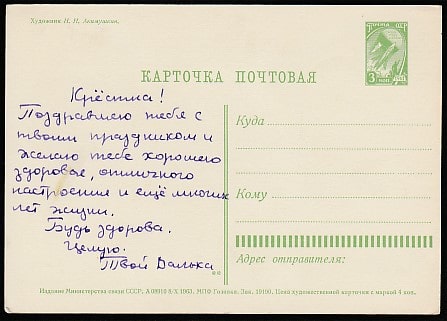 Художник И. И. Акимушкин.
ПОЧТА СССР
3 КОП
КАРТОЧКА ПОЧТОВАЯ
Крёстна!
Поздравляю тебя с
твоим праздником и
желаю тебе хорошего
здоровья, отличного
настроения и ещё многих
лет жизни.
Будь здорова.
Целую.
Твой Валька
Куда
Кому
Адрес отправителя:
Издание Министерства связи СССР. А 08910 8-X 1963. МПФ Гознака. Зак. 10100. Цена художественной карточки с маркой 4 коп.